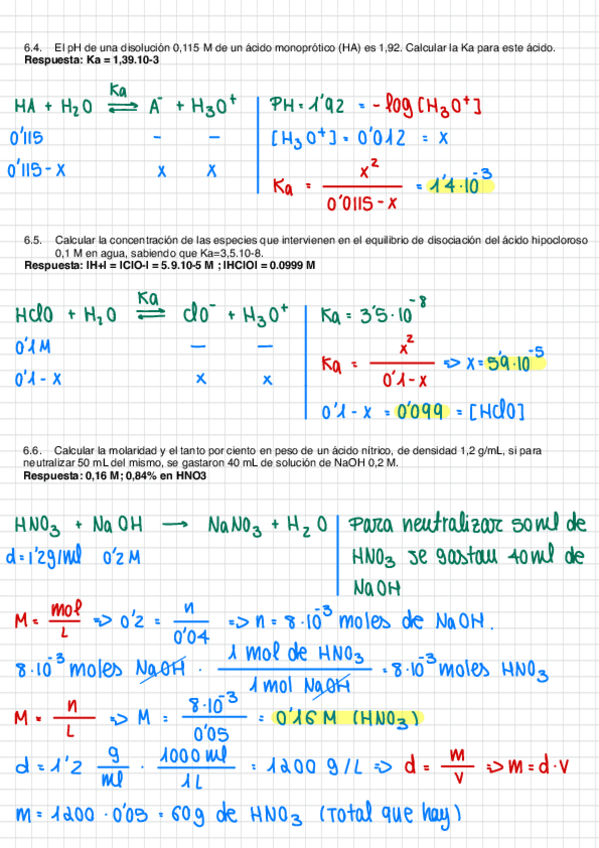 6.4. El pH de una disolución 0,115 M de un ácido monoprótico (HA) es 1,92. Calcular la Ka para este ácido.
Respuesta: Ka = 1,39.10-3
HA + H₂O ⇌ A⁻ + H₃O⁺
Ka
0'115 — —
0'115-x x x
PH = 1'92 = -log [H₃O⁺]
[H₃O⁺] = 0'012 = x
Ka = x² / 0'0115 - x = 1'4·10⁻³
6.5. Calcular la concentración de las especies que intervienen en el equilibrio de disociación del ácido hipocloroso
0,1 M en agua, sabiendo que Ka=3,5.10-8.
Respuesta: IH+I = IClO-I = 5.9.10-5 M ; IHClOI = 0.0999 M
HClO + H₂O ⇌ ClO⁻ + H₃O⁺
Ka
0'1M — —
0'1-x x x
Ka = 3'5·10⁻⁸
Ka = x² / 0'1-x => x = 5'9·10⁻⁵
0'1-x = 0'099 = [HClO]
6.6. Calcular la molaridad y el tanto por ciento en peso de un ácido nítrico, de densidad 1,2 g/mL, si para
neutralizar 50 mL del mismo, se gastaron 40 mL de solución de NaOH 0,2 M.
Respuesta: 0,16 M; 0,84% en HNO3
HNO₃ + NaOH → NaNO₃ + H₂O
d=1'2g/ml 0'2 M
Para neutralizar 50ml de
HNO₃ se gastan 40ml de
NaOH
M = mol / L => 0'2 = n / 0'04 => n = 8·10⁻³ moles de NaOH.
8·10⁻³ moles NaOH · 1 mol de HNO₃ / 1 mol NaOH = 8·10⁻³ moles HNO₃
M = n / L => M = 8·10⁻³ / 0'05 = 0'16 M (HNO₃)
d = 1'2 g / ml · 1000 ml / 1L = 1200 g/L => d = m / v => m = d·V
m = 1200 · 0'05 = 60g de HNO₃ (Total que hay)